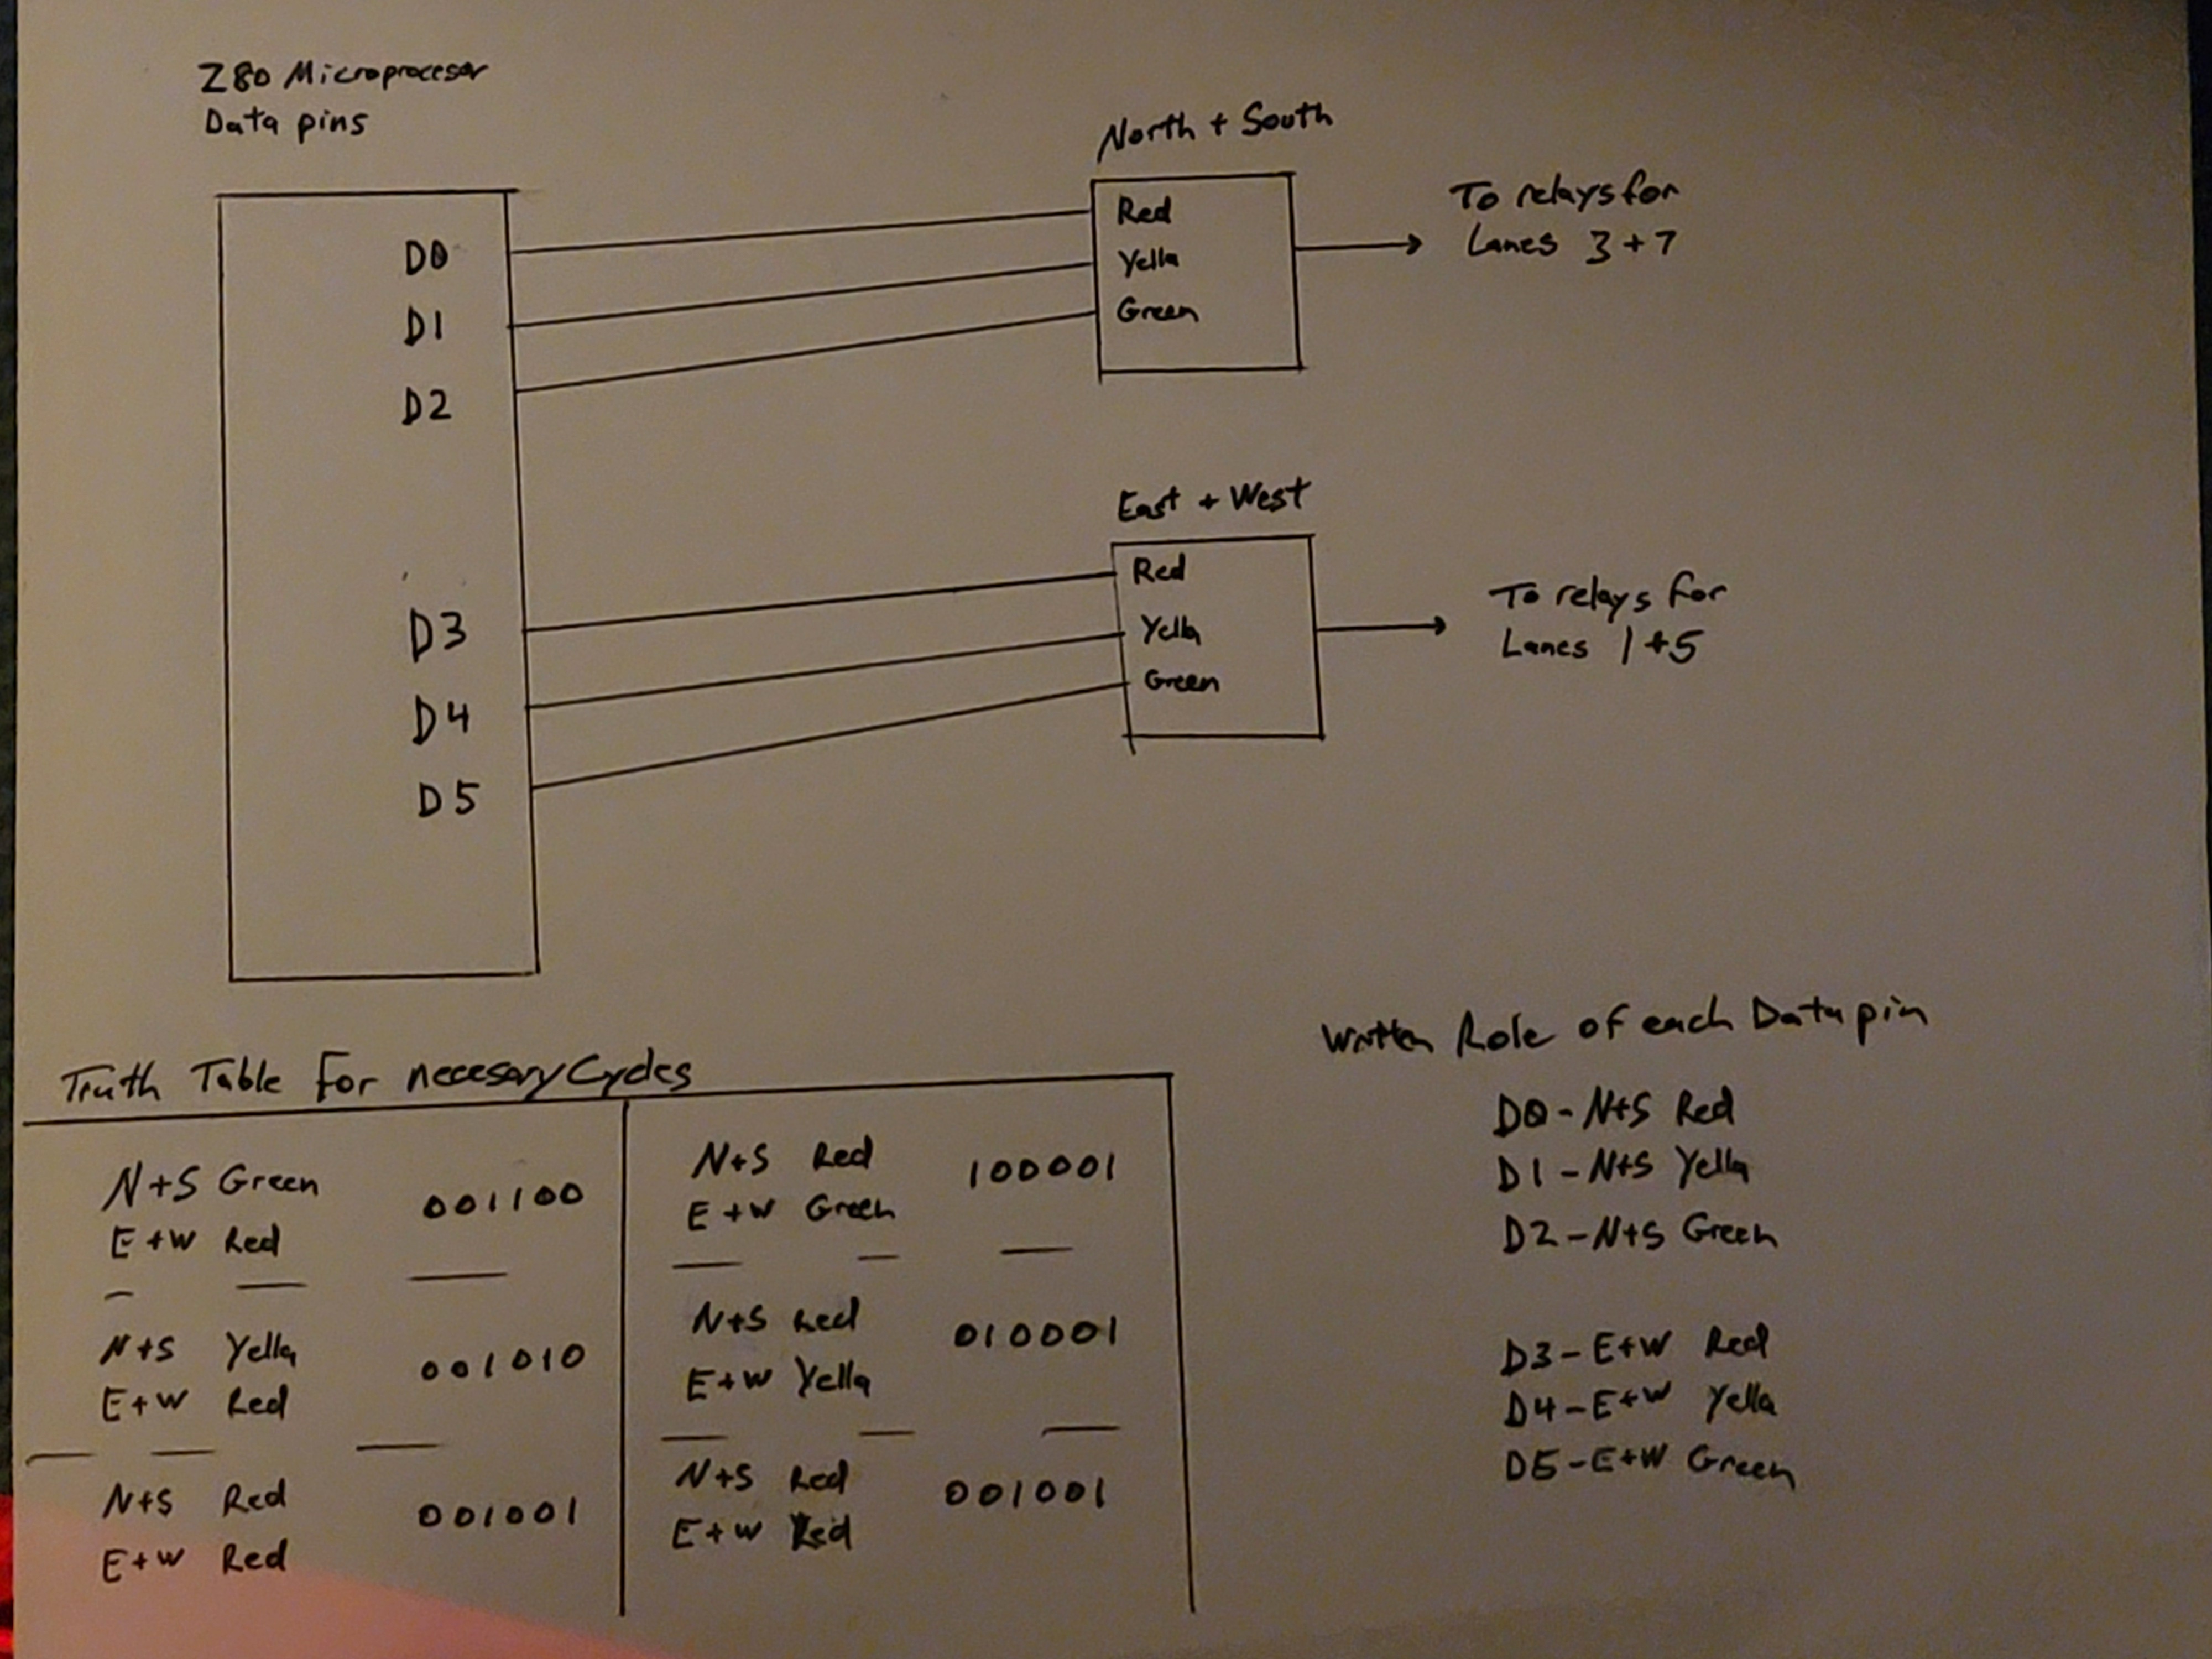 Z80 Microprocesor
Data pins
D0
D1
D2
D3
D4
D5
North + South
Red
Yella
Green
To relays for
Lanes 3 + 7
East + West
Red
Yella
Green
To relays for
Lanes 1 + 5
Truth Table For necesary Cycles
N+S Green
E+W Red
001100
N+S Yella
E+W Red
001010
N+S Red
E+W Red
001001
N+S Red
E+W Green
100001
N+S Red
E+W Yella
010001
N+S Red
E+W Red
001001
Written Role of each Data pin
D0 - N+S Red
D1 - N+S Yella
D2 - N+S Green
D3 - E+W Red
D4 - E+W Yella
D5 - E+W Green